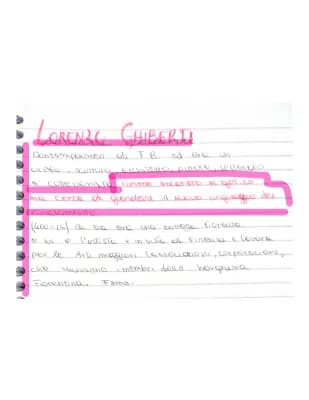 LORENZO GHIBERTI
Contemporaneo di F.B. ed era un
orafo, scultore, architetto,
e costruttore. rimane ancorato al gotico
ma cerca di prendere il nuovo linguaggio del
rinascimento
(400-15) da sia era una bottega fiorente
e lui è l'artista + in vista di Firenze e lavora
per le Arti maggiori (associazioni, corporazioni,
che riunivano i membri della borghesia
Fiorentina. Fama.